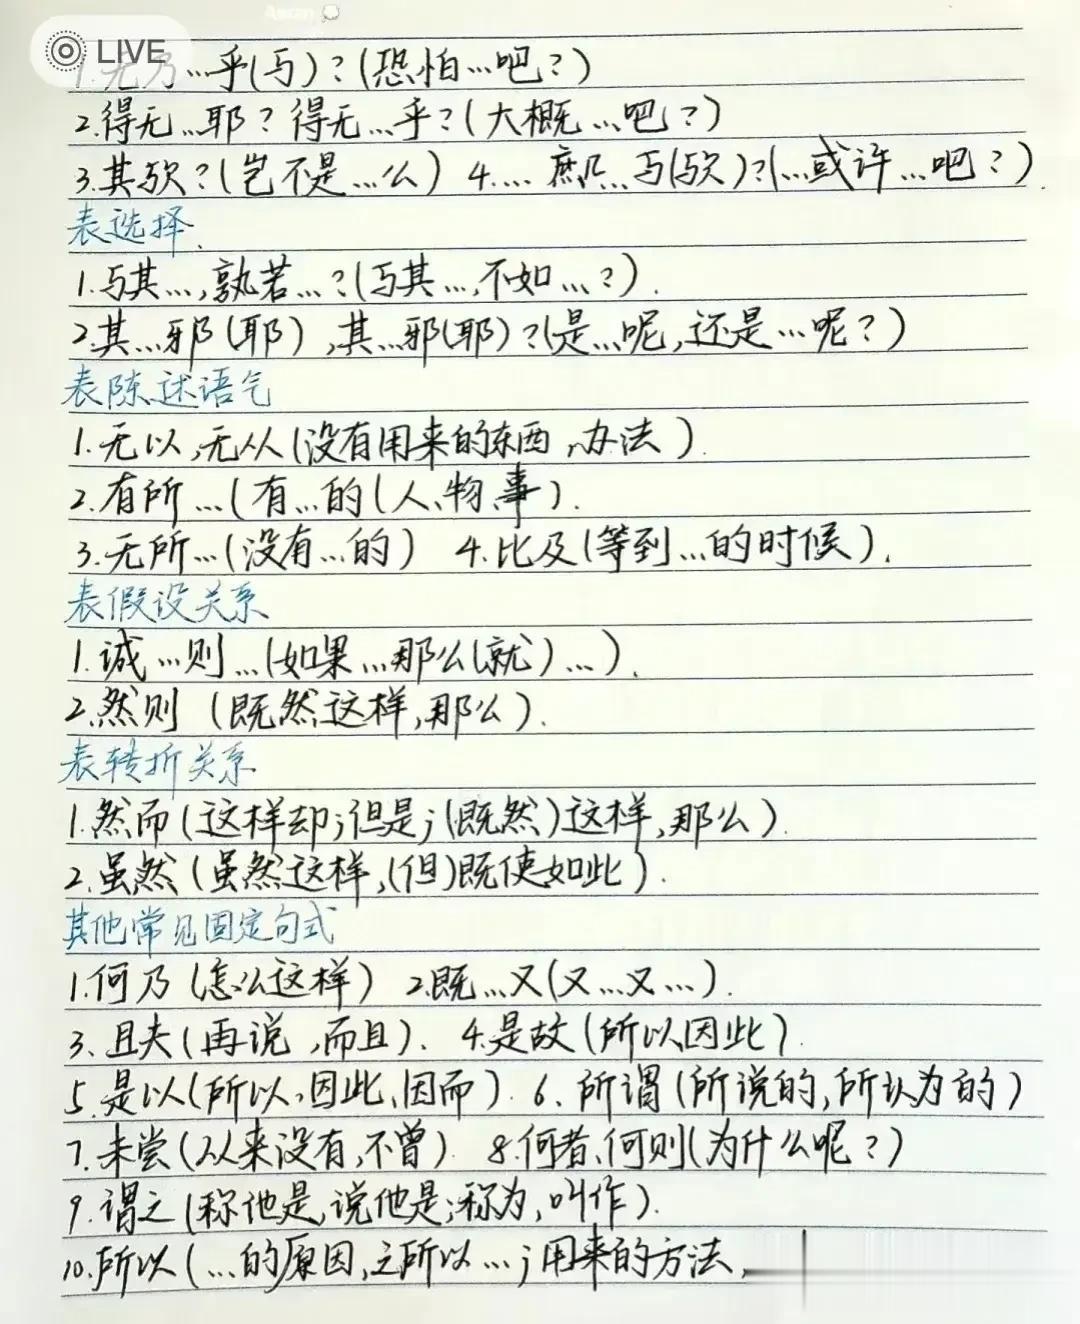 LIVE
1.无乃…乎(与)?(恐怕…吧?)
2.得无…耶?得无…乎?(大概…吧?)
3.其欤?(岂不是…么) 4.…庶几…与(欤)?(…或许…吧?).
表选择.
1.与其…,孰若…?(与其…,不如…?).
2.其…邪(耶),其…邪(耶)?(是…呢,还是…呢?)
表陈述语气
1.无以,无从(没有用来的东西,办法).
2.有所…(有…的(人、物、事).
3.无所…(没有…的) 4.比及(等到…的时候).
表假设关系
1.诚…则…(如果…那么(就)…).
2.然则(既然这样,那么).
表转折关系
1.然而(这样却;但是;(既然)这样,那么).
2.虽然(虽然这样,(但)既使如此).
其他常见固定句式
1.何乃(怎么这样) 2.既…又(又…又…).
3.且夫(再说,而且). 4.是故(所以、因此).
5.是以(所以,因此、因而). 6.所谓(所说的,所认为的)
7.未尝(从来没有,不曾). 8.何者、何则(为什么呢?)
9.谓之(称他是,说他是;称为,叫作).
10.所以(…的原因,之所以…;用来的方法,